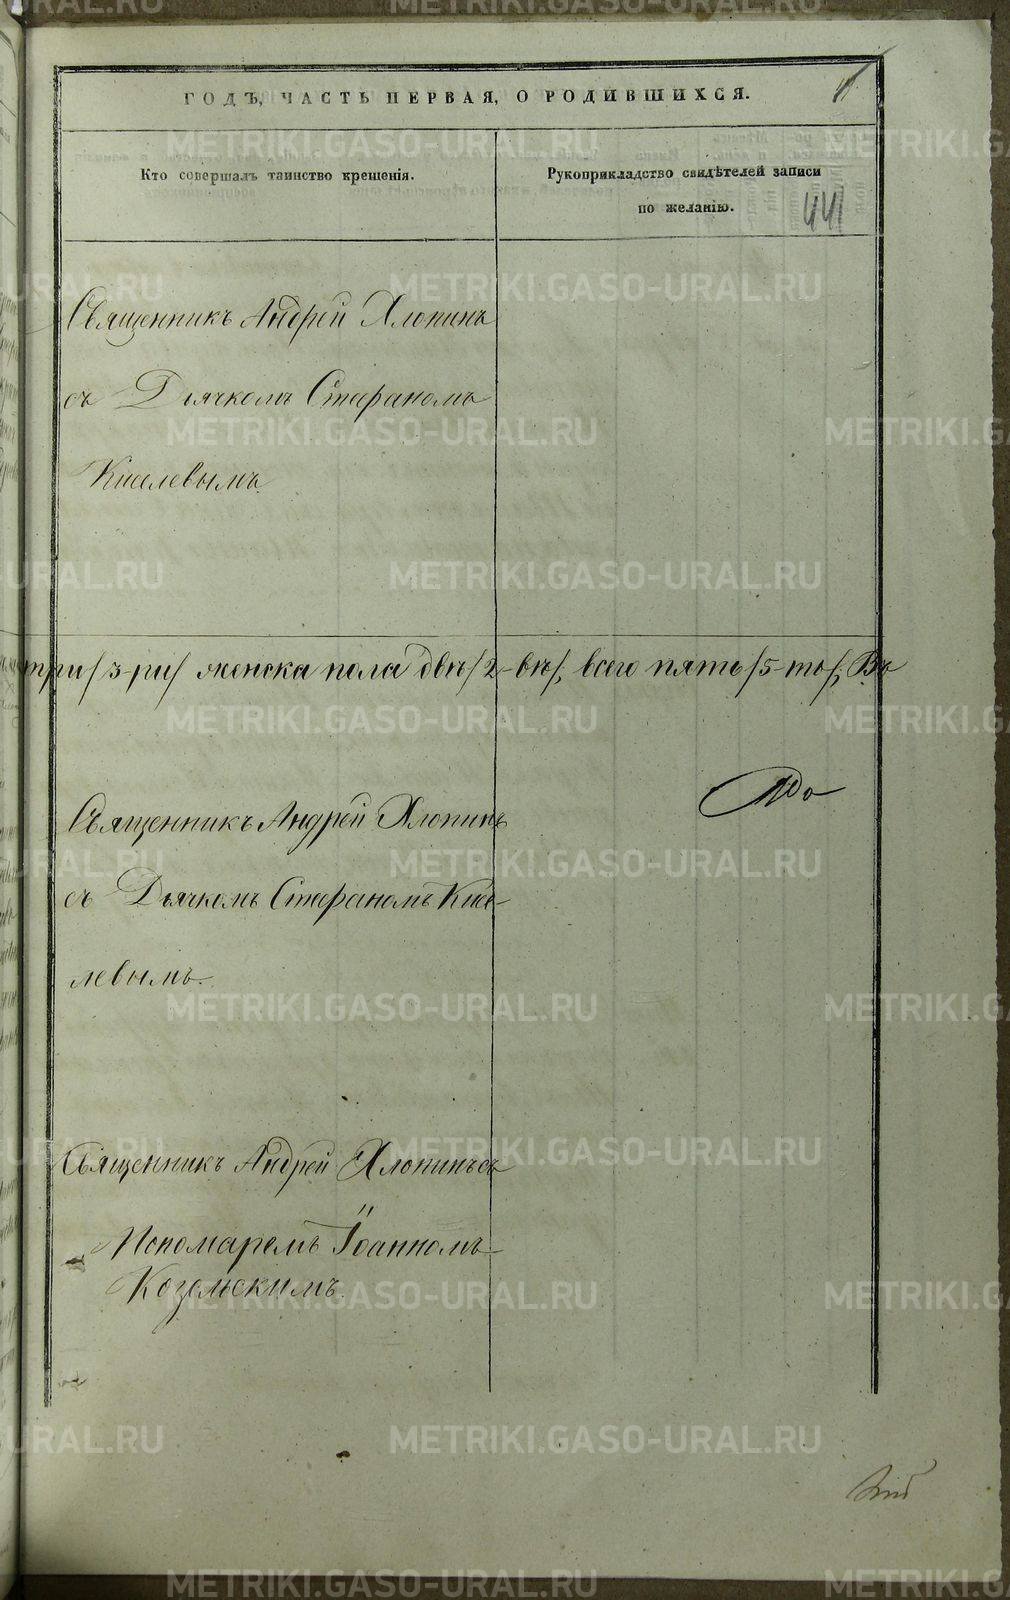 ГОДЪ, ЧАСТЬ ПЕРВАЯ, О РОДИВШИХСЯ.
Кто совершалъ таинство крещенія.
Рукоприкладство свидѣтелей записи
по желанію.
441
Священникъ Андрей Хлопинъ
съ Дьячкомъ Стефаномъ
Киселевымъ.
три/3-ри/ женска пола двѣ/2-вѣ/, всего пять/5-ть/; Въ
Священникъ Андрей Хлопинъ
съ Дьячкомъ Стефаномъ Кисе-
левымъ.
Священникъ Андрей Хлопинъ съ
Пономаремъ Іоанномъ
Козельскимъ.
METRIKI.GASO-URAL.RU